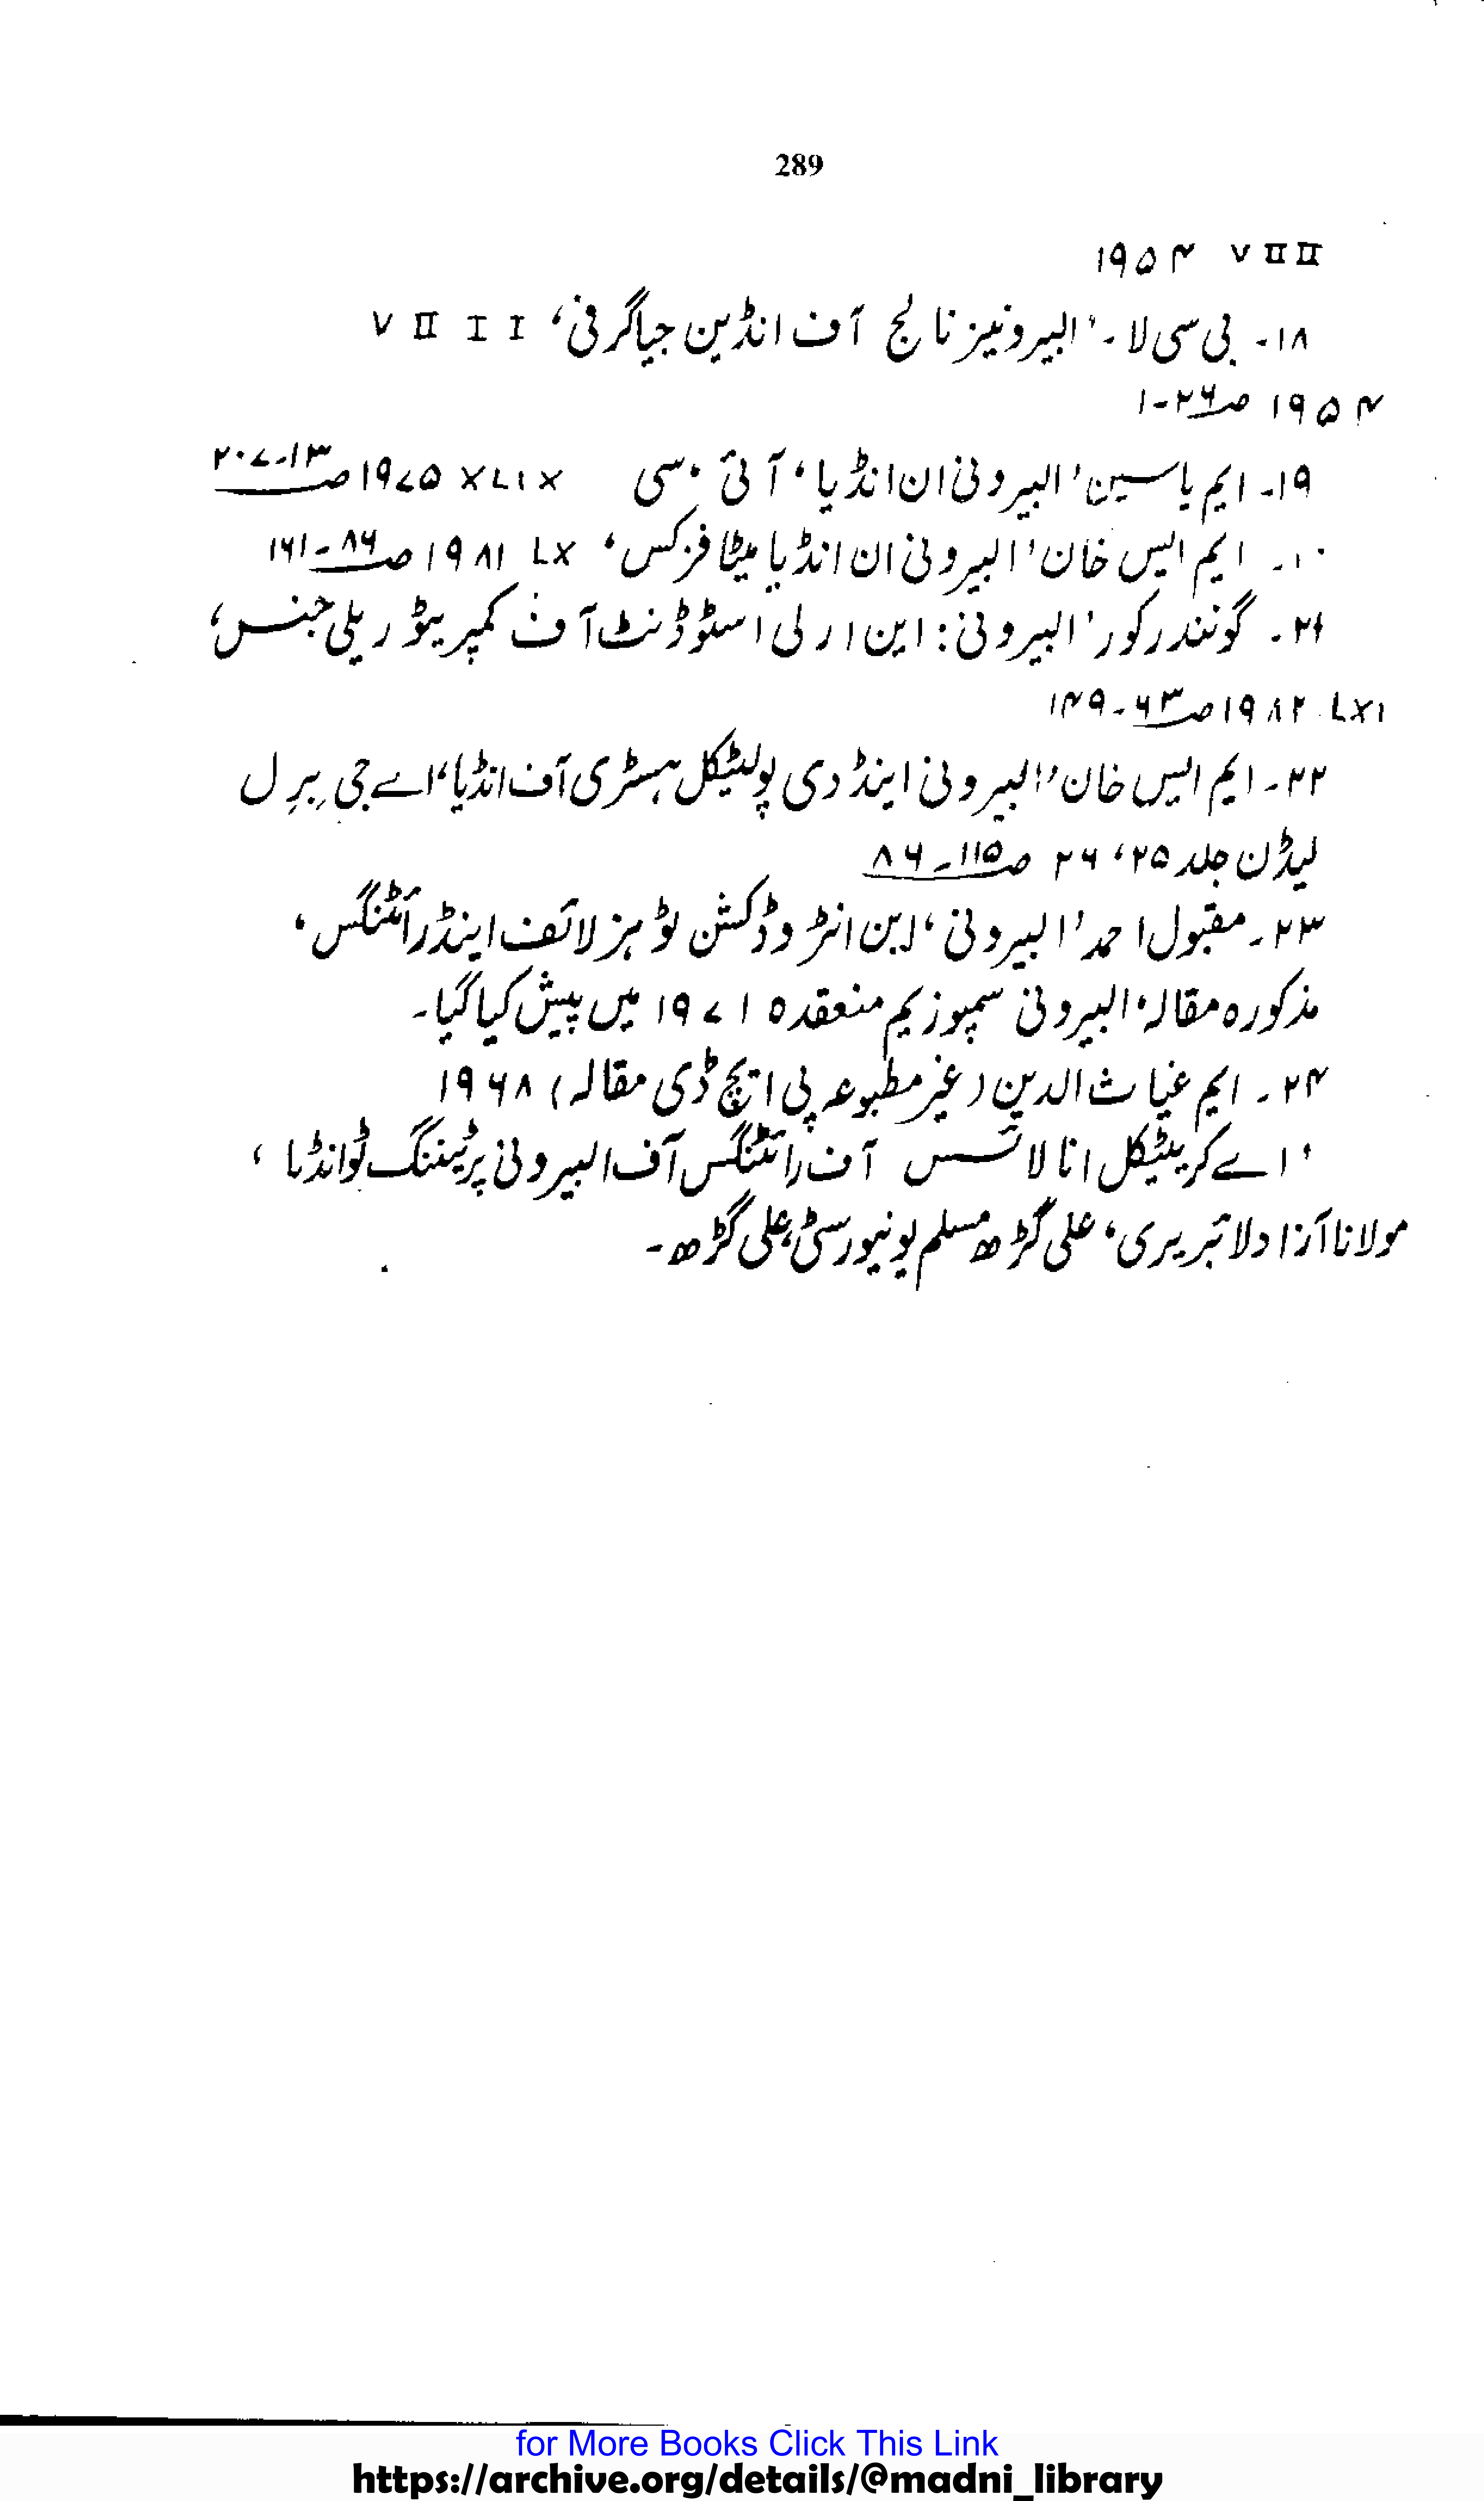 289
VIII ۱۹۵۴
۱۸۔ بی سی لا۔ 'البیرونیز نالج آف انڈین جیاگرفی، VIII
۱۹۵۴ صـ۲۶-۱
۱۹۔ ایم یاسین 'البیرونی ان انڈیا، آئی، سی XLIX ۱۹۷۵ صـ۱۳-۲۰۷
۱۰۔ ایم ایس خان 'البیرونی ان انڈیا میٹا فزکس، LX ۱۹۸۱ صـ۸۶-۱۶۱
۲۱۔ گونندر کور 'البیرونی: این ارلی اسٹوڈنٹ آف کمپریٹو ریلی جنس،
LXI ۱۹۸۲ صـ۶۳-۱۴۹
۲۲۔ ایم ایس خان 'البیرونی اینڈ دی پولیٹکل ہسٹری آف انڈیا، اے جی بِرِل
لیڈن جلد ۲۵، ۲۶ صـ۱۱۵-۸۶
۲۳۔ مقبول احمد 'البیرونی، این انٹروڈکشن ٹو ہز لائف اینڈ رائٹنگس،
مذکورہ مقالہ، البیرونی سمپوزیم منعقدہ ۱۹۷۱ میں پیش کیا گیا۔
۲۴۔ ایم غیاث الدین (غیر مطبوعہ پی ایچ ڈی مقالہ) ۱۹۶۸
'اے کریٹیکل انالائسس آف رائٹنگس آف البیرونی پرٹیننگ ٹو انڈیا،
مولانا آزاد لائبریری، علی گڑھ مسلم یونیورسٹی، علی گڑھ۔
for More Books Click This Link
https://archive.org/details/@madni_library